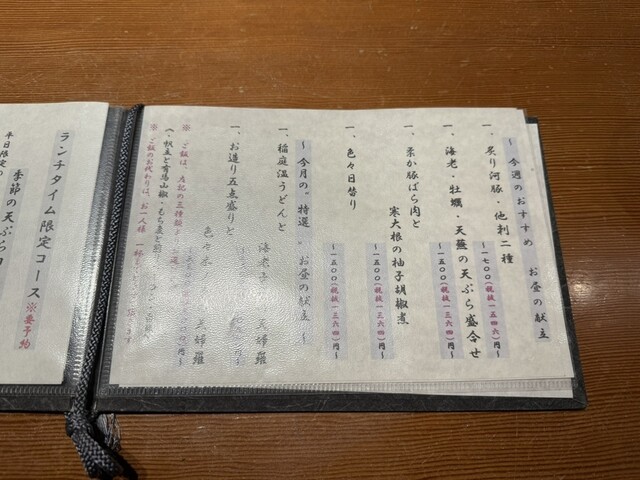 ～ 今週のおすすめ お昼の献立
一、炙り河豚・他刺二種
～一七〇〇(税抜一五四六)円～
一、海老・牡蠣・天蕪の天ぷら盛合せ
～一五〇〇(税抜一三六四)円～
一、柔か豚ばら肉と
寒大根の柚子胡椒煮
～一五〇〇(税抜一三六四)円～
一、色々日替り
～一五〇〇(税抜一三六四)円～
～ 今月の“特選” お昼の献立 ～
一、稲庭温うどんと
海老 天婦羅
一、お造り五点盛りと
色々 天婦羅
円～
※ ご飯は、左記の三種類より
※ ご飯のお代わりは、お一人様 一杯
ランチタイム限定コース ※要予約
平日限定の
季節の天ぷら